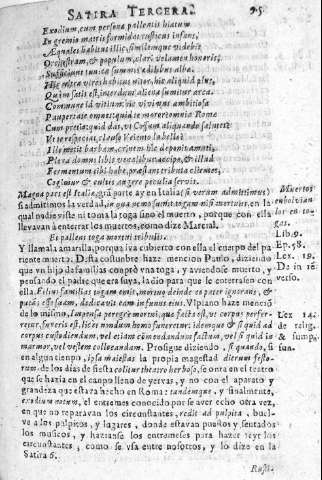 SATIRA TERCERA. 95.
Exodium, cum persona pallentis hiatum
In gremio matris formidat rusticus infans,
Æquales habitus illic, similemque videbis
Orchestram, & populum, clari velamen honoris,
Sufficiunt tunicæ summis ædilibus albæ.
Hic ultra vires habitus nitor, hic aliquid plus,
Quàm satis est, interdum aliena sumitur arca.
Commune id vitium: hic vivimus ambitiosa
Paupertate omnes: quid te moror omnia Romæ
Cum pretio: quid das, ut Cossum aliquando salutes?
Ut te respiciat, clauso Veiento labello?
Ille metit barbam, crinem hic deponit amati,
Plena domus libis venalibus accipe, & illud
Fermentum tibi habe, præstare tributa clientes,
Cogimur & cultis augere peculia servis.
Magna pars est Italiæ, grā parte ay en Italia, si verum admittimus,
si admitimos la verdad, in qua nemo sumit togam nisi mortuus, en la
qual nadie viste ni toma la toga sino el muerto, porque con ella
llevavan à enterrar los muertos, como dize Marcial.
Et pallens toga mortui tribulis.
Y llamala amarilla, porque iva cubierto con ella el cuerpo del pa
riente muerto. Desta costumbre haze mencion Paulo, diziendo
que vn hijo de familias comprò vna toga, y aviendose muerto, y
pensando el padre que era suya, la dio para que le enterrasen con
ella. Filius familias togam emit, mortuo deinde eo pater ignorans, &
putās esse suam, dedicavit eam in funus eius. Vlpiano haze menciō
de lo mismo. Impensa peregre mortui, quæ facta est, ut corpus perfer-
retur, funeris est, licet nondum homo funeretur: idemque & si quid ad
corpus custodiendum, vel etiam commendandum factum, vel si quid in
marmor, vel vestem collocandam. Prosigue diziendo, si quando, si
en algun tiempo, ipsa maiestas la propia magestad dierum festo-
rum, de los dias de fiesta colitur theatro herboso, se onra en el teatro
que se hazia en el campo lleno de yervas, y no con el aparato y
grandeza que estava hecho en Roma: tandemque, y finalmente,
exodium notum, el entremes conocido por se aver echo otra vez,
en que no reparavan los circunstantes, redit ad pulpita, buel-
ve a los pulpitos, y lugares, donde estavan puestos y sentados
los musicos, y hazianse los entremeses para hazer reyr los
circunstantes, como se vsa entre nosotros, y lo dize en la
Satira 6.
Rusti-
Muertos
enbolvian
los en to-
gas.
Lib. 9.
Ep. 58.
Lex. 19.
De in rē
verso.
Lex 14.
de relig.
& sump.
fun.